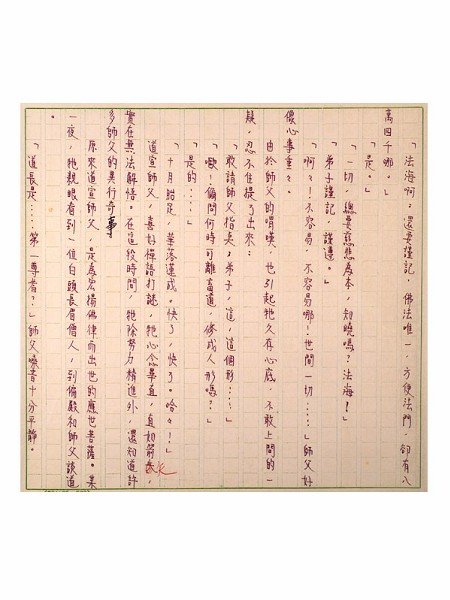 「法海啊，還要謹記，佛法唯一，方便法門，卻有八
萬四千哪。」
「是。」
「一切，總要慈悲為本，知曉嗎？法海？」
「弟子謹記，謹遵。」
「啊！不容易，不容易哪！世間一切……」師父好
像心事重重。
由於師父的嘆，也引起牠久存心底，不敢上問的一
疑，忍不住提了出來：
「敢請師父指矣。弟子，這，這個形……」
「噢！偏問何時可離畜道，修成人形嗎？」
「是的……」
「十月話足，華落蓮成。快了，快了。哈哈！」
道宣師父，喜好禪語打謎，牠心念畢直，直如箭矢，
實在無法解悟。在這段時間，牠除努力精進外，還知道許
多師父的異行奇事
原來道宣師父，是為宏揚佛律而出世的應世菩薩。某
一夜，牠親眼看到一位白頭長眉僧人，到偏殿和師父談道
。
「道長是……第一尊者？」師父嗓音十分平靜。